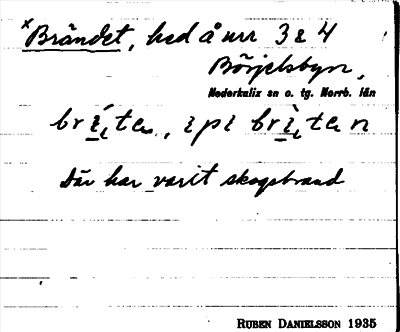 × Brändet, hed å nrr 3 & 4
Börjelsbyn,
Nederkalix sn o. tg. Norrb. län
Där har varit skogsbrand
RUBEN DANIELSSON 1935